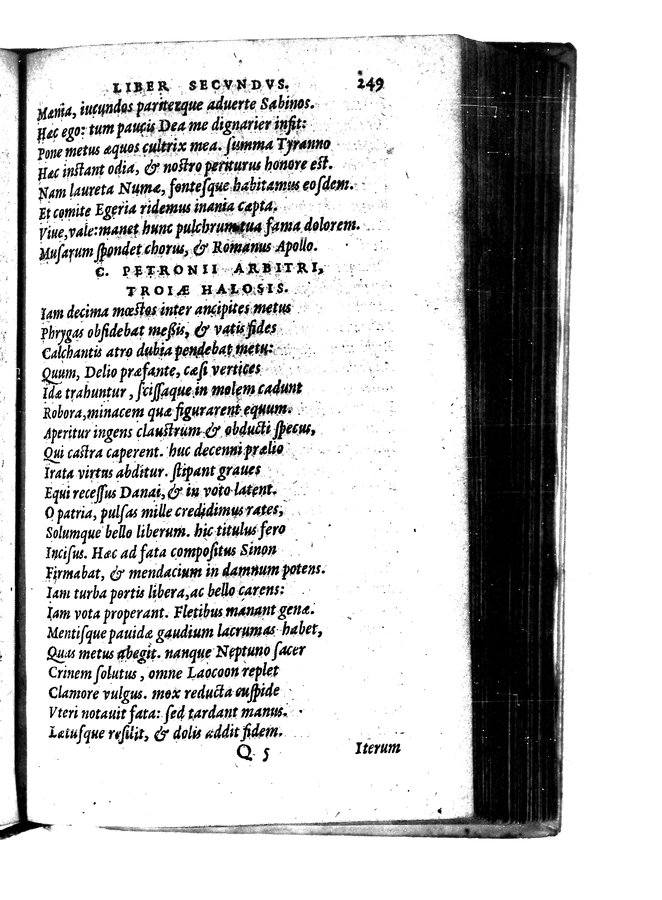 LIBER SECVNDVS. 249
Mœnia, iucundos pariterque aduerte Sabinos.
Hæc ego: tum paucis Dea me dignarier infit:
Pone metus æquos cultrix mea. ſumma Tyranno
Hæc inſtant odia, & noſtro periturus honore eſt.
Nam laureta Numæ, fonteſque habitamus eoſdem.
Et comite Egeria ridemus inania cæpta.
Viue, vale: manet hunc pulchrum tua fama dolorem.
Muſarum ſpondet chorus, & Romanus Apollo.
C. PETRONII ARBITRI,
TROIÆ HALOSIS.
Iam decima mœſtos inter ancipites metus
Phrygas obſidebat meßis, & vatis fides
Calchantis atro dubia pendebat metu:
Quum, Delio præfante, cæſi vertices
Idæ trahuntur, ſciſſaque in molem cadunt
Robora, minacem quæ figurarent equum.
Aperitur ingens clauſtrum & obducti ſpecus,
Qui caſtra caperent. huc decenni prælio
Irata virtus abditur. ſtipant graues
Equi receſſus Danai, & in voto latent.
O patria, pulſas mille credidimus rates,
Solumque bello liberum. hic titulus fero
Inciſus. Hæc ad fata compoſitus Sinon
Firmabat, & mendacium in damnum potens.
Iam turba portis libera, ac bello carens:
Iam vota properant. Fletibus manant genæ.
Mentiſque pauidæ gaudium lacrumas habet,
Quas metus abegit. nanque Neptuno ſacer
Crinem ſolutus, omne Laocoon replet
Clamore vulgus. mox reducta cuſpide
Vteri notauit fata: ſed tardant manus.
Ictuſque reſilit, & dolis addit fidem.
Q 5 Iterum